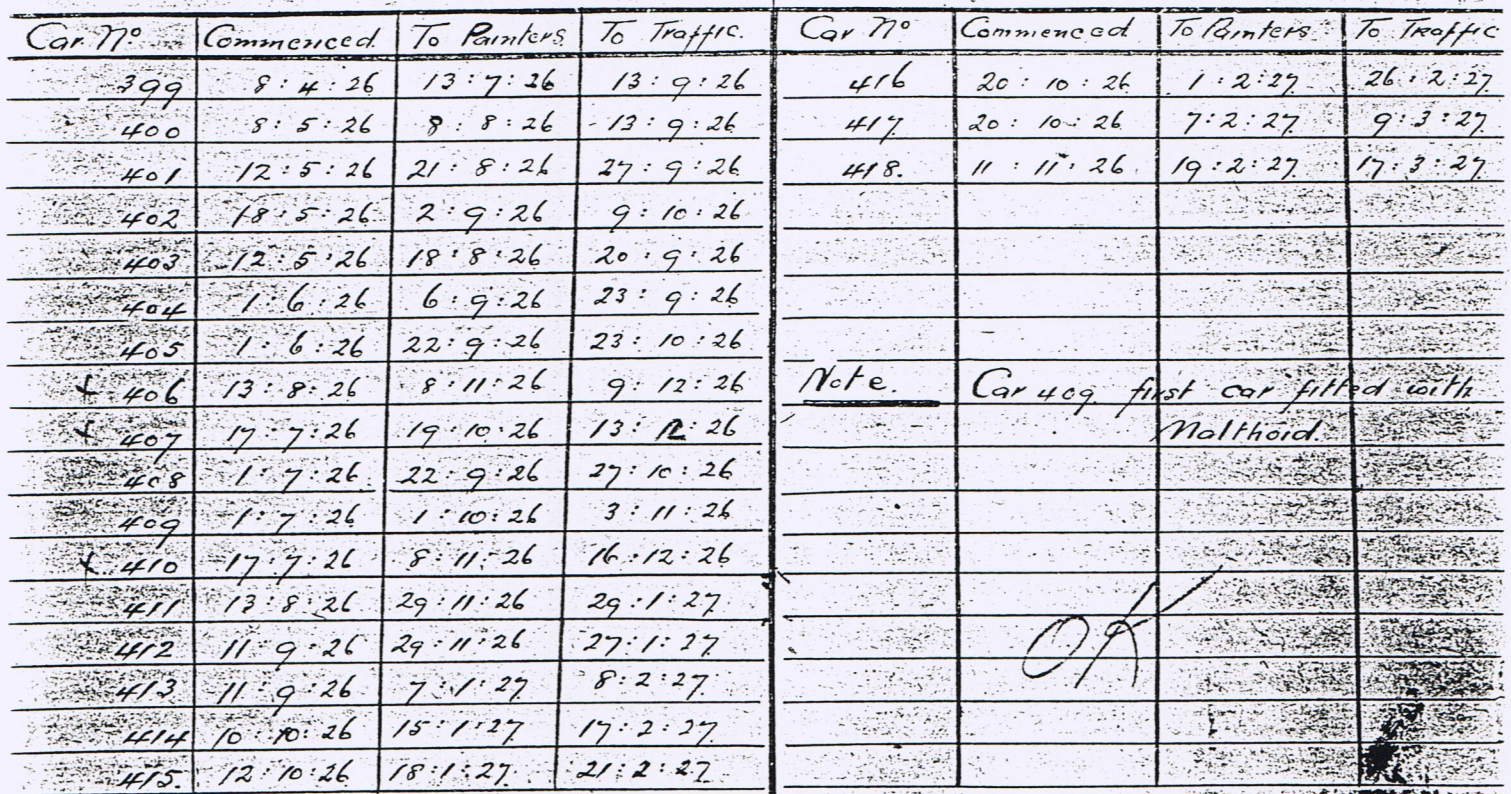 Car No Commenced. To Painters To Traffic.
399 8:4:26 13:7:26 13:9:26
400 8:5:26 8:8:26 13:9:26
401 12:5:26 21:8:26 27:9:26
402 18:5:26 2:9:26 9:10:26
403 12:5:26 18:8:26 20:9:26
404 1:6:26 6:9:26 23:9:26
405 1:6:26 22:9:26 23:10:26
406 13:8:26 8:11:26 9:12:26
407 17:7:26 19:10:26 13:12:26
408 1:7:26 22:9:26 27:10:26
409 1:7:26 1:10:26 3:11:26
410 17:7:26 8:11:26 16:12:26
411 13:8:26 29:11:26 29:1:27
412 11:9:26 29:11:26 27:1:27
413 11:9:26 7:1:27 8:2:27
414 10:10:26 15:1:27 17:2:27
415. 12:10:26 18:1:27 21:2:27
Car No Commenced To Painters To Traffic
416 20:10:26 1:2:27 26:2:27
417 20:10:26 7:2:27 9:3:27
418. 11:11:26 19:2:27 17:3:27
Note. Car 409 first car fitted with
Malthoid.
OK